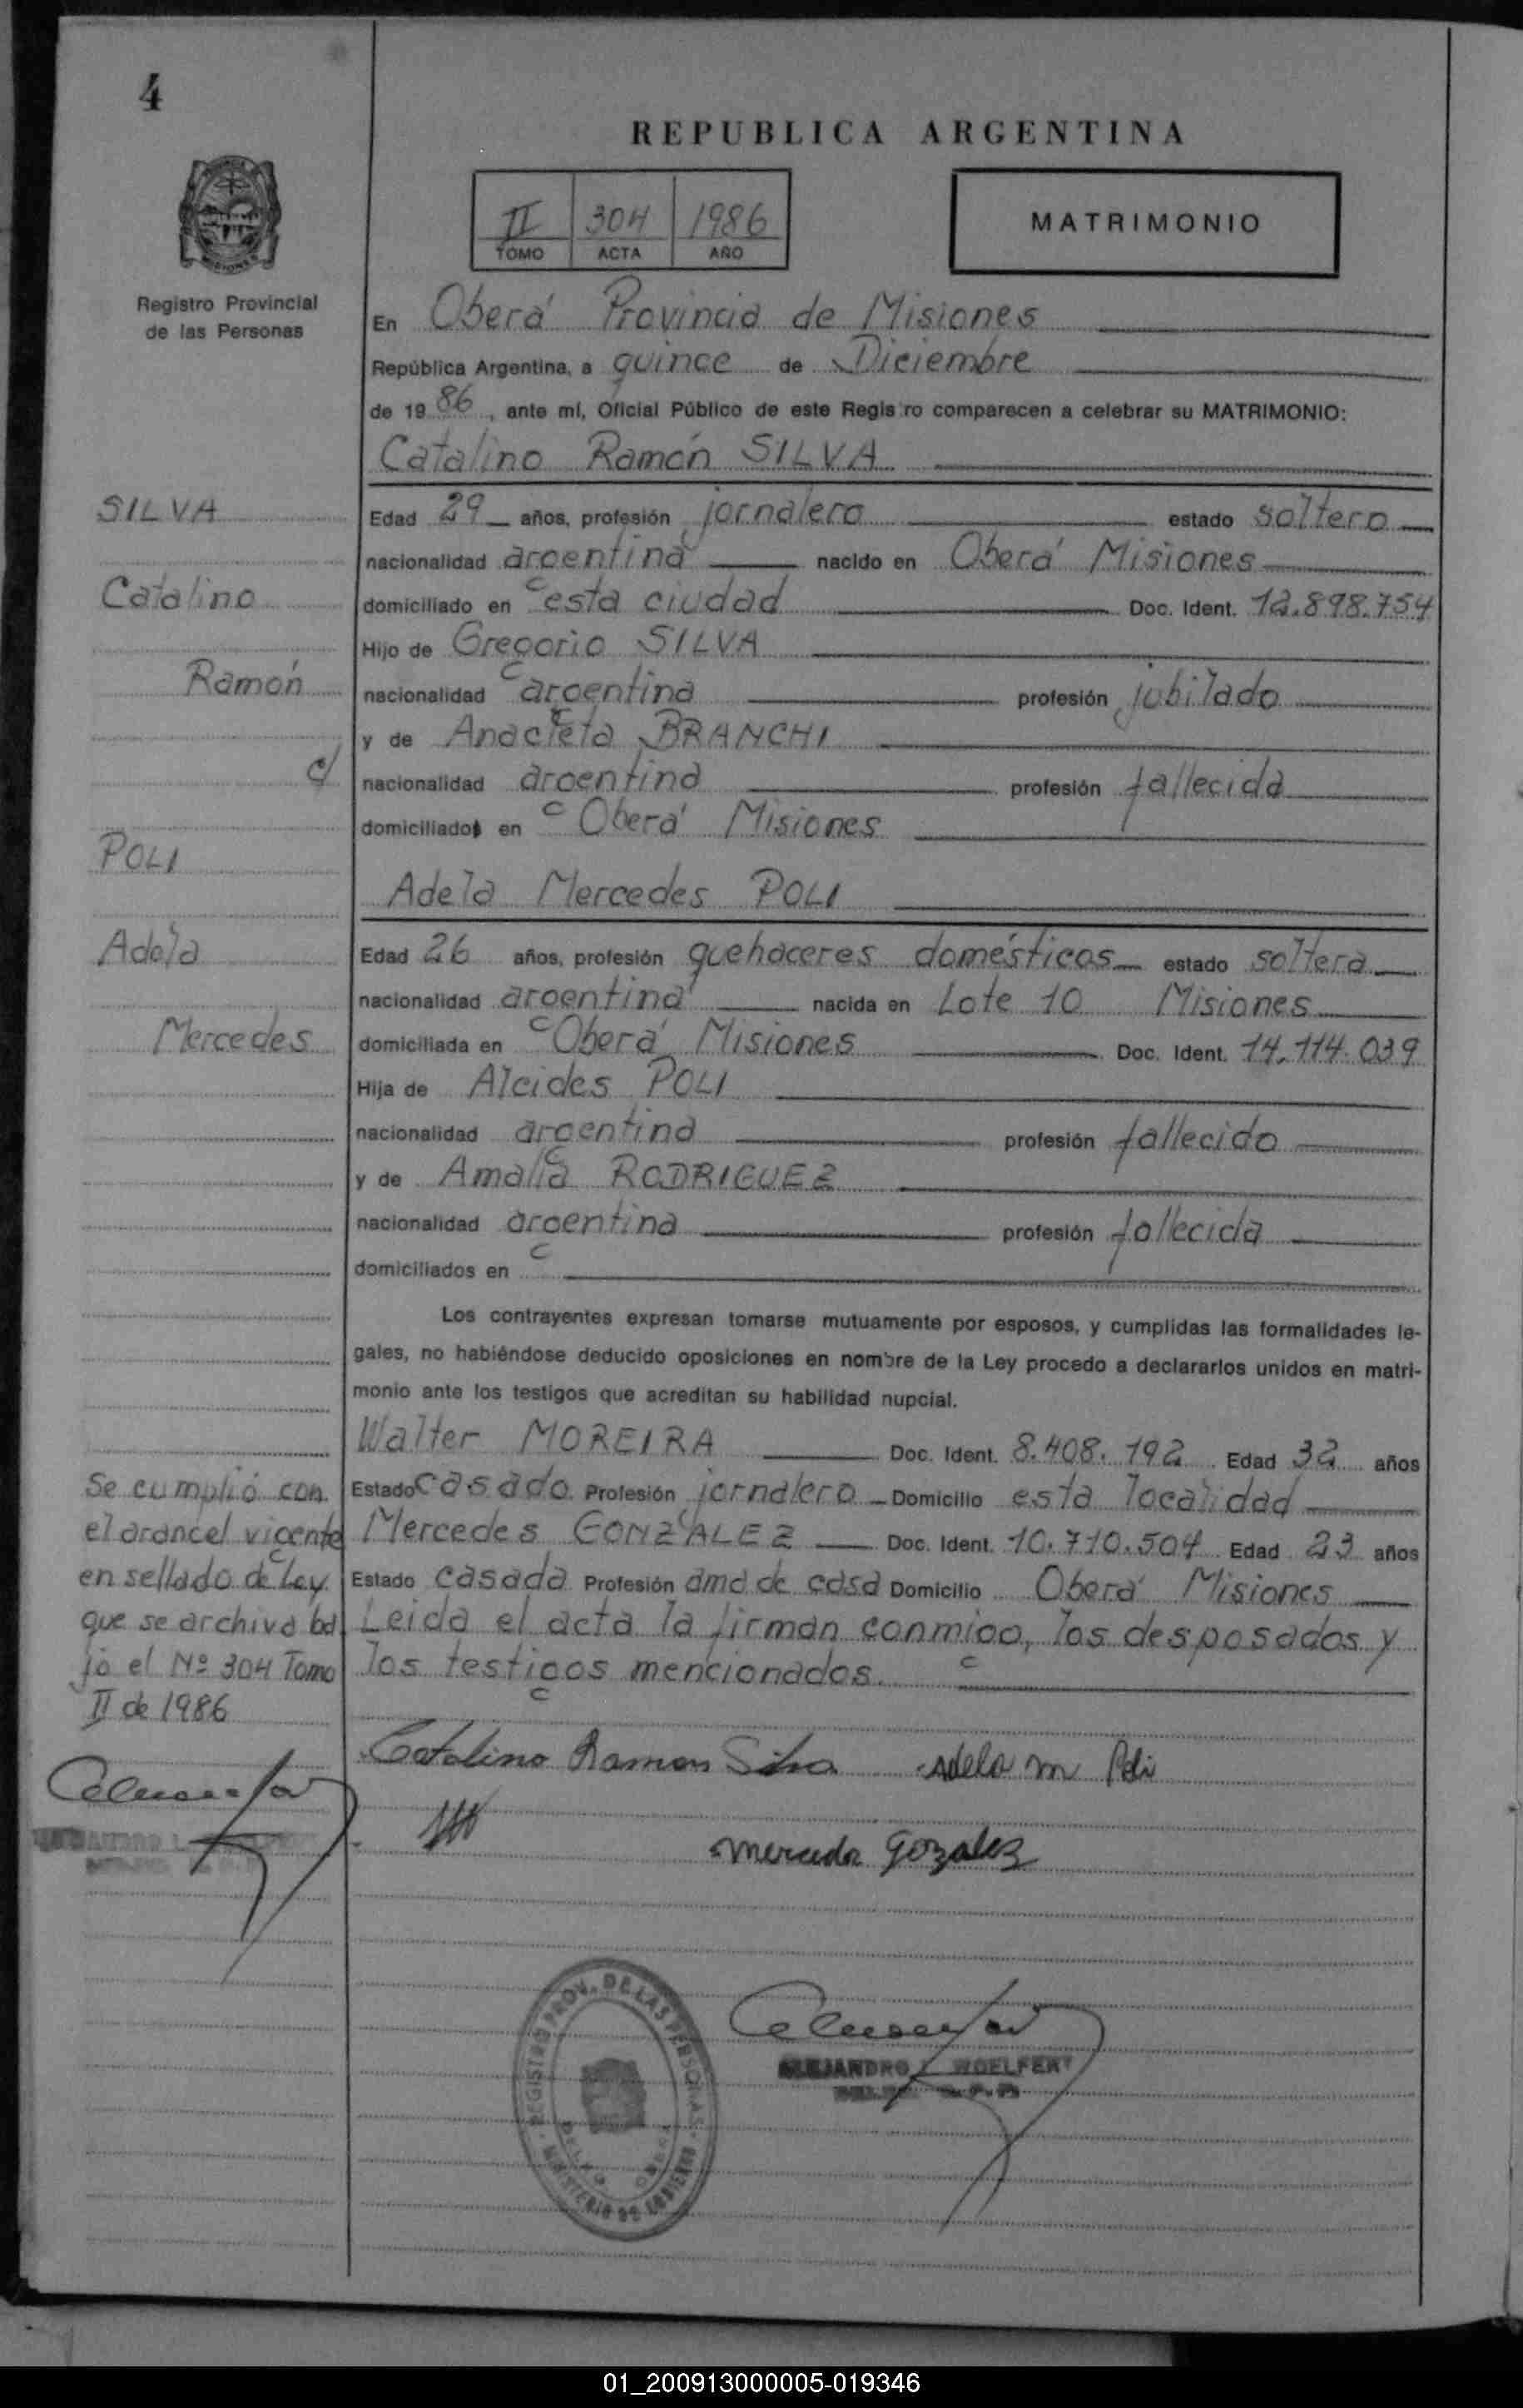 4
REPUBLICA ARGENTINA
II 304 1986
TOMO ACTA AÑO
MATRIMONIO
Registro Provincial
de las Personas
En Oberá Provincia de Misiones
República Argentina, a quince de Diciembre
de 1986, ante mí, Oficial Público de este Regis ro comparecen a celebrar su MATRIMONIO:
Catalino Ramón SILVA
SILVA
Catalino
Ramón
c/
POLI
Adela
Mercedes
Edad 29 años, profesión jornalero estado soltero
nacionalidad argentina nacido en Oberá Misiones
domiciliado en esta ciudad Doc. Ident. 12.898.754
Hijo de Gregorio SILVA
nacionalidad argentina profesión jubilado
y de Anacleta BRANCHI
nacionalidad argentina profesión fallecida
domiciliado en Oberá Misiones
Adela Mercedes POLI
Edad 26 años, profesión quehaceres domésticos estado soltera
nacionalidad argentina nacida en Lote 10 Misiones
domiciliada en Oberá Misiones Doc. Ident. 14.114.039
Hija de Alcides POLI
nacionalidad argentina profesión fallecido
y de Amalia RODRIGUEZ
nacionalidad argentina profesión fallecida
domiciliados en
Los contrayentes expresan tomarse mutuamente por esposos, y cumplidas las formalidades le-
gales, no habiéndose deducido oposiciones en nombre de la Ley procedo a declararlos unidos en matri-
monio ante los testigos que acreditan su habilidad nupcial.
Walter MOREIRA Doc. Ident. 8.408.192 Edad 32 años
Estado casado Profesión jornalero Domicilio esta localidad
Mercedes GONZALEZ Doc. Ident. 10.710.504 Edad 23 años
Estado casada Profesión ama de casa Domicilio Oberá Misiones
Leida el acta la firman conmigo, los desposados y
los testigos mencionados.
Se cumplió con
el arancel vigente
en sellado de Ley
que se archiva ba
jo el Nº 304 Tomo
II de 1986
Catalino Ramon Silva Adela m Poli
Mercedes Gozalez
REGISTRO PROV. DE LAS PERSONAS
MINISTERIO DE GOBIERNO
ALEJANDRO L. WOELFERT
01_200913000005-019346